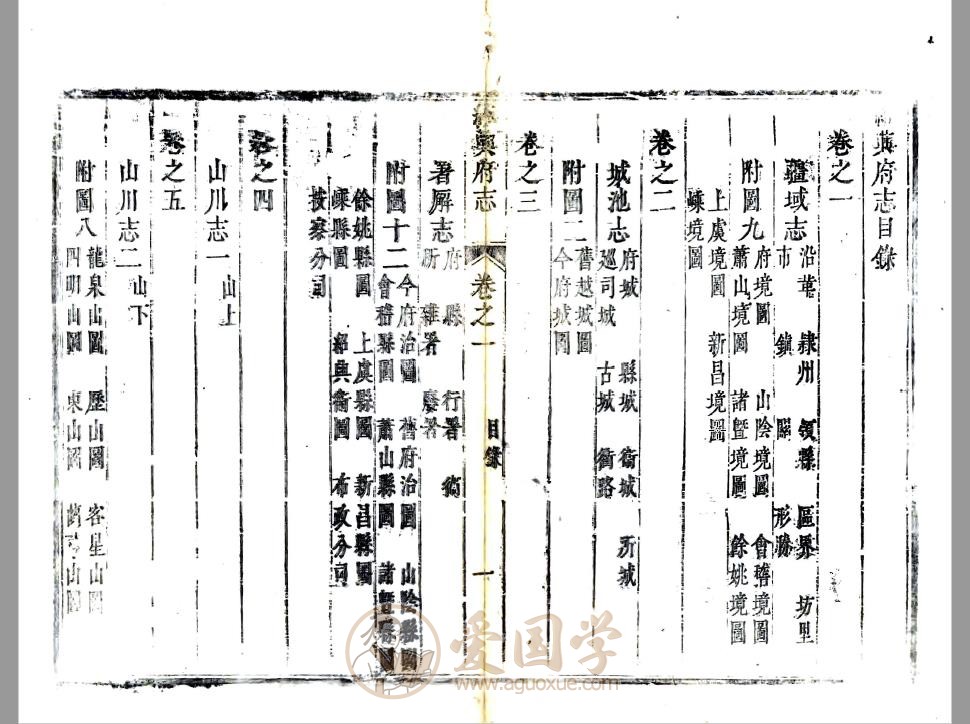 興府志目錄
卷之一
疆域志 沿革 隷州 領縣 區界 坊里
市 鎮 關 形勝
附圖九 府境圖 山陰境圖 會稽境圖
蕭山境圖 諸暨境圖 餘姚境圖
上虞境圖 新昌境圖
嵊境圖
卷之二
城池志 府城 縣城 衞城 所城
廵司城 古城 衢路
附圖二 舊越城圖
今府城圖
卷之三
興府志 卷之一 目錄 一
署廨志 府 縣 行署 衞
所 雜署 廢署
附圖十二 今府治圖 舊府治圖 山陰縣圖
會稽縣圖 蕭山縣圖 諸暨縣圖
餘姚縣圖 上虞縣圖 新昌縣圖
嵊縣圖 紹興衞圖 布政分司
按察分司
卷之四
山川志一 山上
卷之五
山川志二 山下
附圖八 龍泉山圖 歷山圖 客星山圖
四明山圖 東山圖 山圖
爱国学
www.aguoxue.com